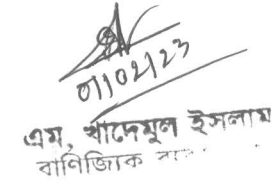 01/02/23
এম, খাদেমুল ইসলাম
বাণিজ্যিক